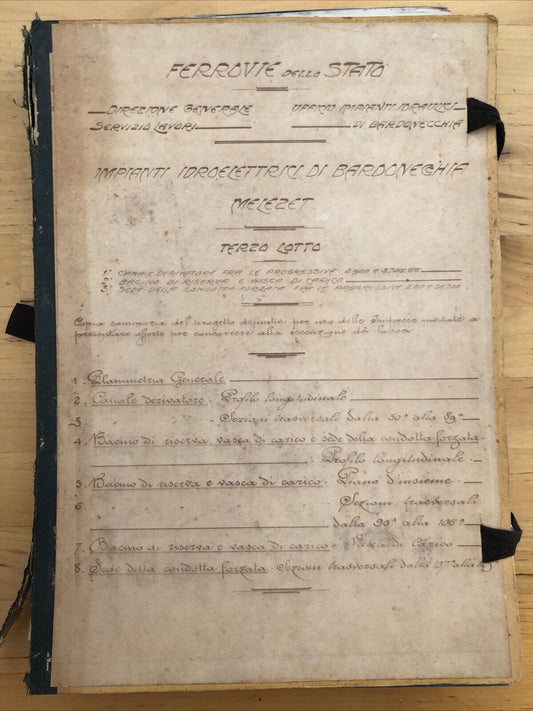 FERROVIE DELLO STATO
DIREZIONE GENERALE UFFICIO IMPIANTI IDRAULICI
SERVIZIO LAVORI DI BARDONECCHIA
IMPIANTI IDROELETTRICI DI BARDONECHIA
MELEZET
TERZO LOTTO
1° CANALE DERIVATORE FRA LE PROGRESSIVE
2° BACINO DI RISERVA E VASCA DI CARICO
3° SEDE DELLA CONDOTTA FORZATA FRA LE PROGRESSIVE
Copia sommaria del progetto definitivo per uso delle Imprese invitate a
presentare offerte per concorrere alla esecuzione dei lavori
1. Planimetria Generale
2. Canale derivatore. Profilo longitudinale
3 Sezioni trasversali dalla 50ª alla 89ª
4. Bacino di riserva, vasca di carico e sede della condotta forzata
Profilo longitudinale
5. Bacino di riserva e vasca di carico. Piano d'insieme
6 Sezioni trasversali
dalla 90ª alla 106ª
7. Bacino di riserva e vasca di carico. Vasca di Carico
8. Sede della condotta forzata. Sezioni trasversali dalla 137ª alla